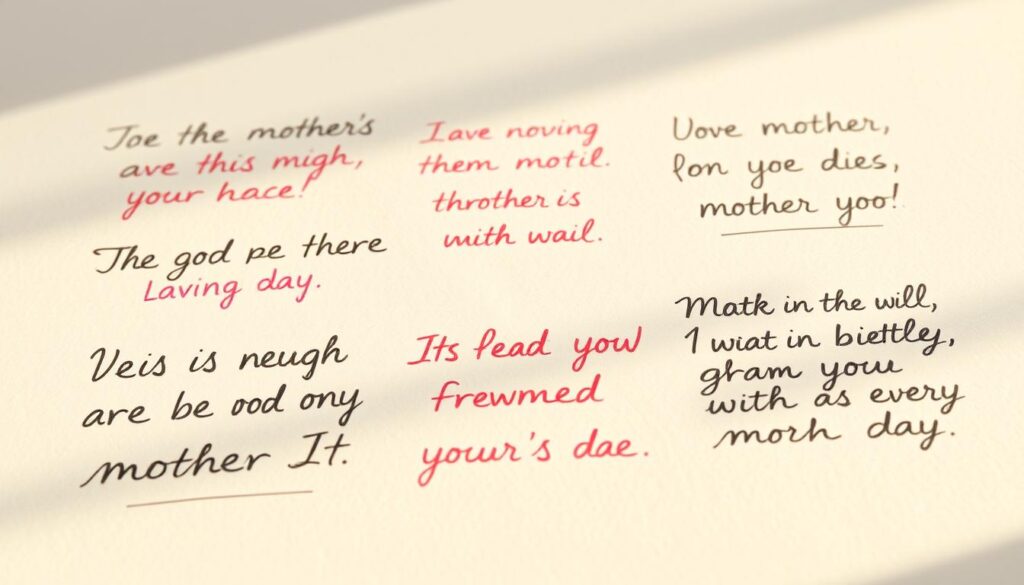 Joe the mother's
ave this migh,
your hace!
The god pe there
Laving day.
Veis is neugh
are be ood ony
mother It.
Iave noving
them motil.
throther is
mith wail.
Its fead yow
frewmed
yowr's dae.
Uove mother,
fon yoe dies,
mother yoo!
Matk in the will,
I wiat in biettley,
gham yow
with as every
morh day.